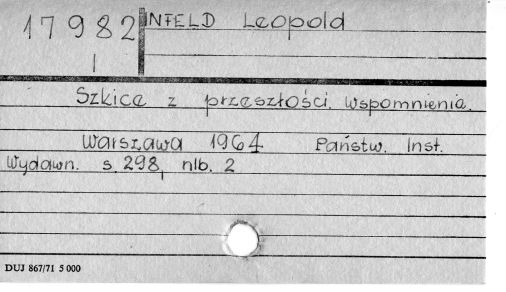 17982 INFELD Leopold
I
Szkice z przeszłości. Wspomnienia.
Warszawa 1964 Państw. Inst.
Wydawn. s. 298, nlb. 2
DUJ 867/71 5 000